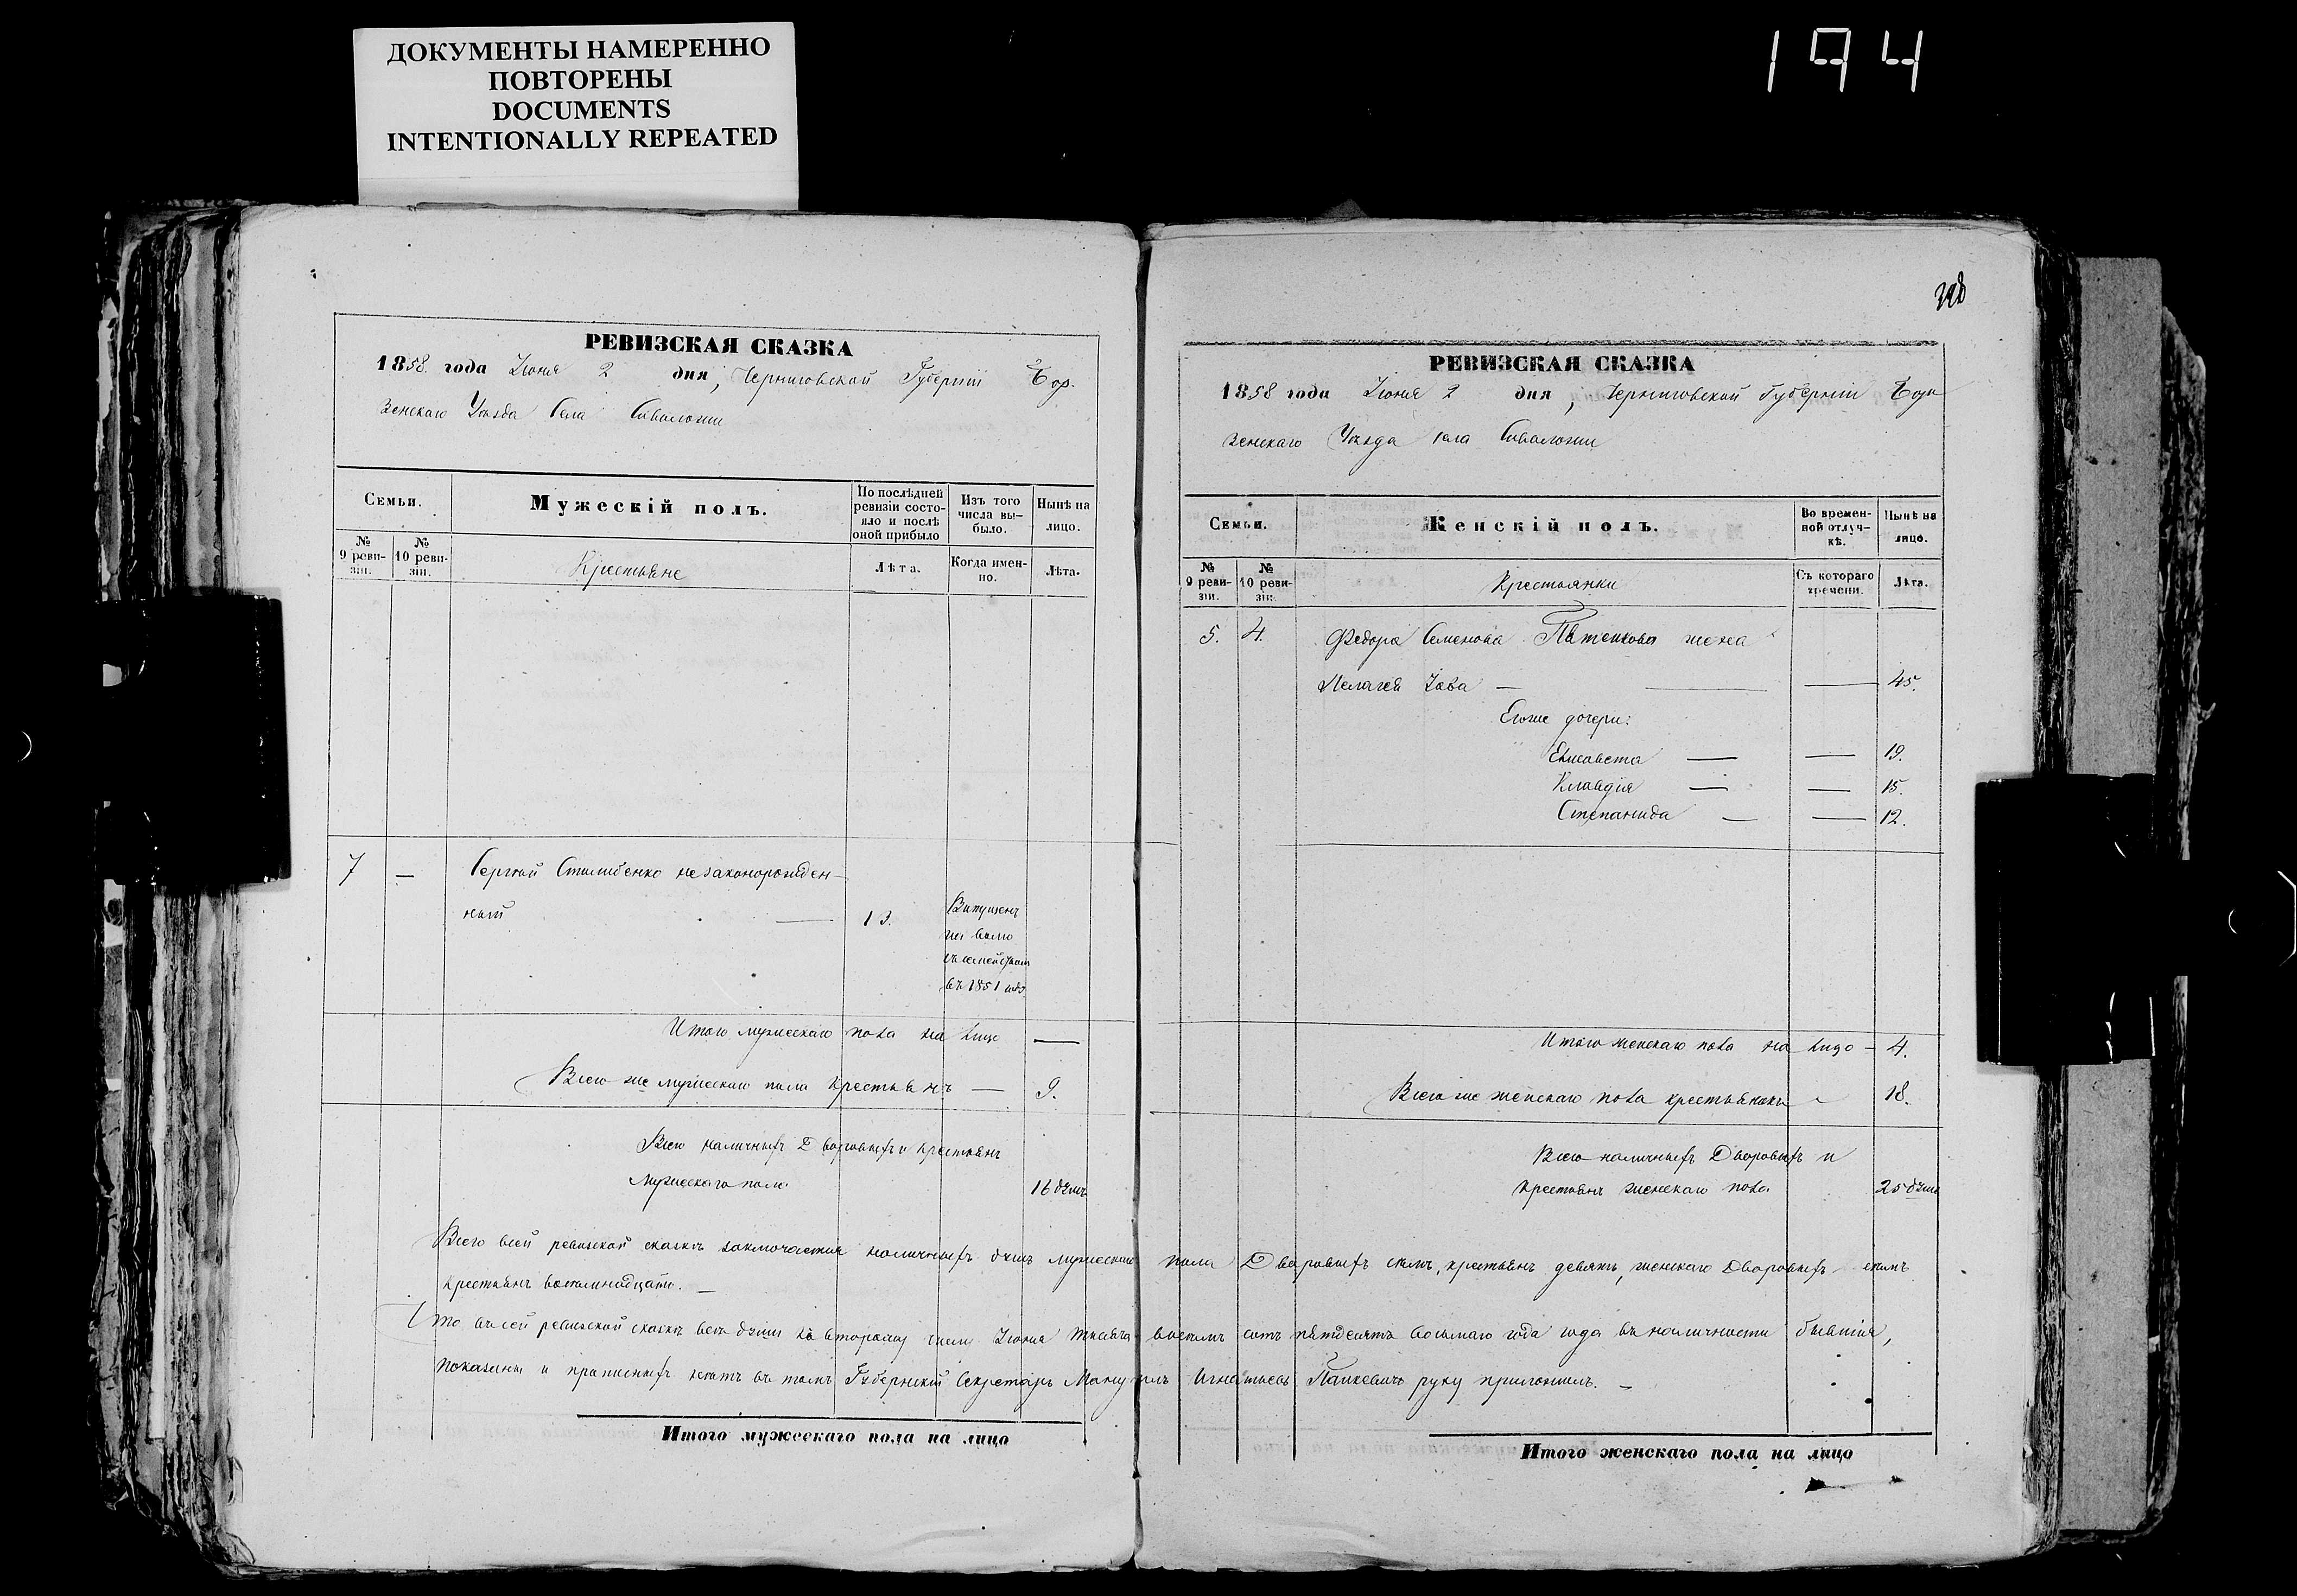 ДОКУМЕНТЫ НАМЕРЕННО
ПОВТОРЕНЫ
DOCUMENTS
INTENTIONALLY REPEATED
194
РЕВИЗСКАЯ СКАЗКА
1858 года Іюня 2 дня, Черниговской Губерніи Бор-
зенскаго Уѣзда Села Сиволожи
Семьи.
Мужескій полъ.
По послѣдней ревизіи состо-
яло и послѣ
оной прибыло
Изъ того
числа вы-
было.
Нынѣ на
лицо.
№
9 реви-
зіи.
№
10 реви-
зіи.
Крестьяне
Лѣта.
Когда имен-
но.
Лѣта.
7 — Сергѣй Стилибенко незаконорожден-
ный — 13.
въ 1851 году
Итого мужескаго пола на лицо —
Всего же мужескаго пола крестьянъ — 9.
Всего наличныхъ Дворовыхъ и крестьянъ
Мужескаго пола 16 душъ
РЕВИЗСКАЯ СКАЗКА
1858 года Іюня 2 дня, Черниговской Губерніи Бор-
зенскаго Уѣзда села Сиволожи
Семьи.
Женскій полъ.
Во времен-
ной отлуч-
кѣ.
Нынѣ на
лицо.
№
9 реви-
зіи.
№
10 реви-
зіи.
Крестьянки
Съ котораго
времени.
Лѣта.
5. 4. Федора Семенова жена
Пелагея Іова — — — 45.
Егоже дочери:
Елисавета — — 19.
Клавдія — — 15.
Степанида — — 12.
Итого женскаго пола на лицо — 4.
Всего же женскаго пола крестьянокъ 18.
Всего наличныхъ Дворовыхъ и
крестьянъ женскаго пола 25 душъ
Всего въ сей ревизской сказкѣ заключается наличныхъ душъ мужескаго пола Дворовыхъ семь, крестьянъ девять, женскаго Дворовыхъ семь
крестьянъ восемнадцать. —
Что въ сей ревизской сказкѣ всѣ души ко второму числу Іюня тысяча восемь сотъ пятдесятъ восьмаго года года въ наличности бывшія,
показаны и прописныхъ нѣтъ въ томъ Губернскій Секретарь Мануилъ Игнатьевъ Панкевичъ руку приложилъ. —
Итого мужескаго пола на лицо
Итого женскаго пола на лицо